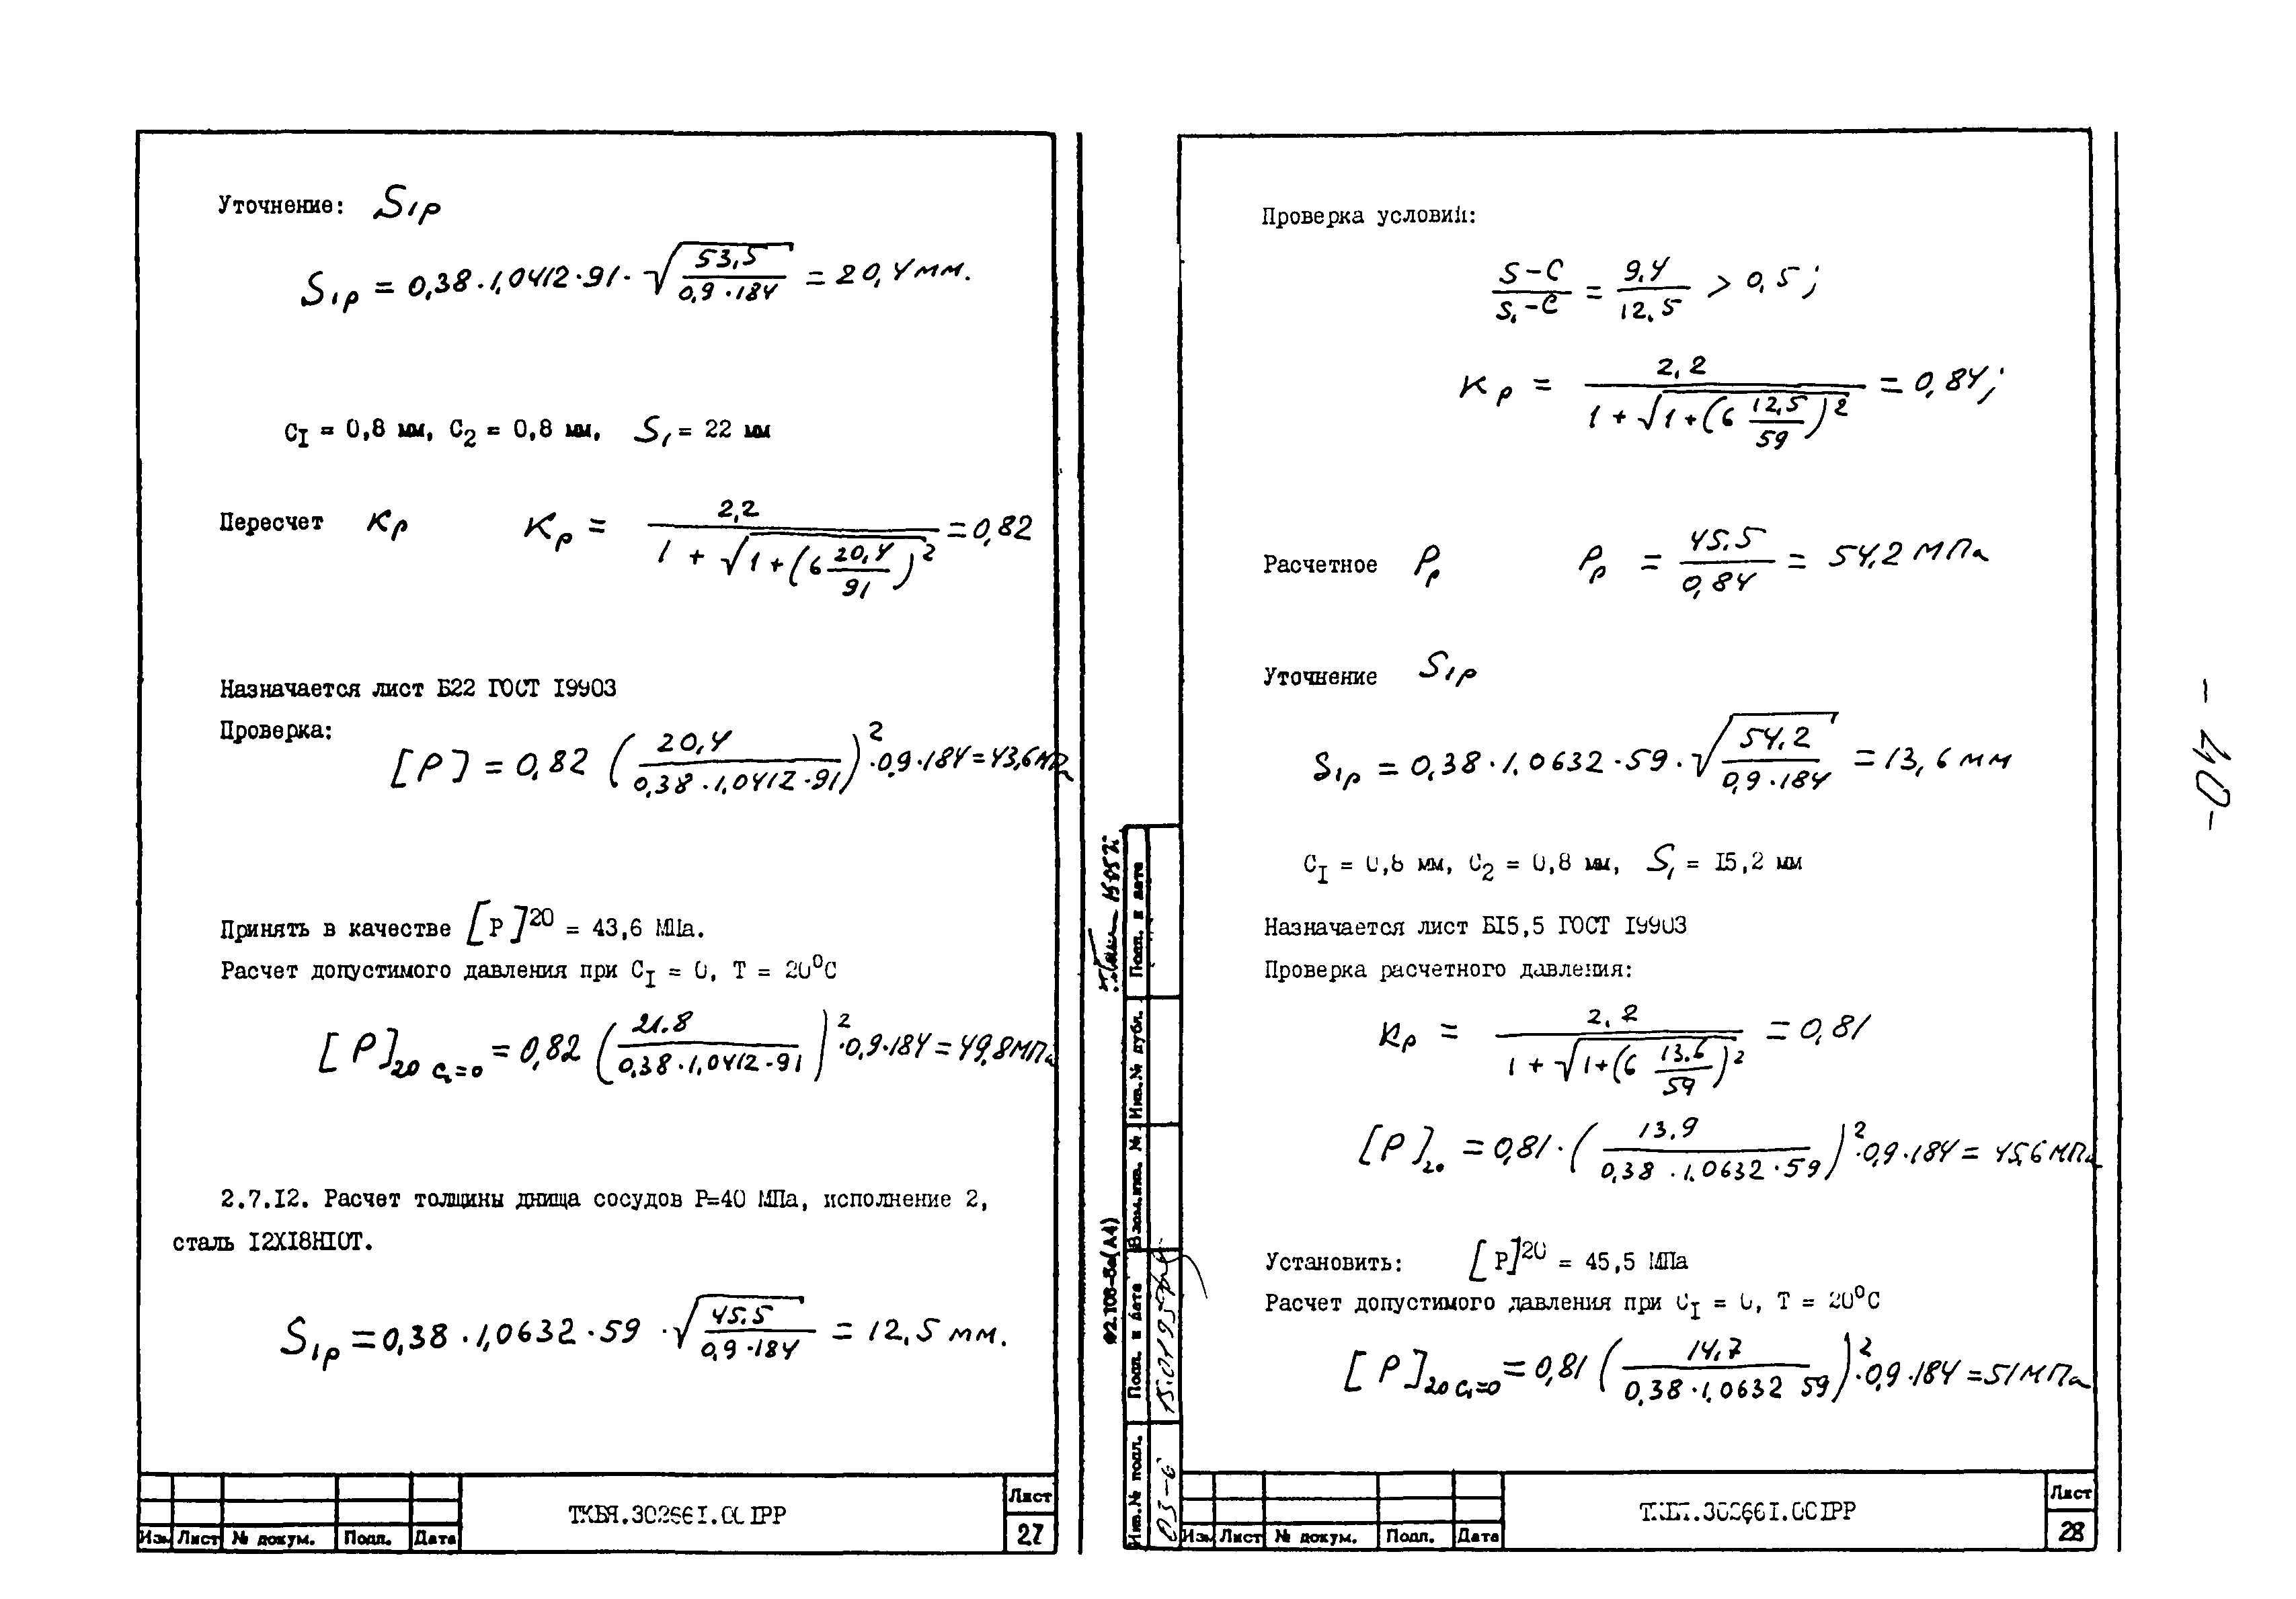 Уточнение: S₁р
S₁р = 0,38·1,0412·91·√(53,5 / 0,9·184) = 20,4 мм.
C_I = 0,8 мм, C₂ = 0,8 мм, S₁ = 22 мм
Пересчет Kр Kр = 2,2 / (1 + √(1 + (6 20,4/91)²)) = 0,82
Назначается лист Б22 ГОСТ I9903
Проверка:
[P] = 0,82 (20,4 / 0,38·1,0412·91)²·0,9·184 = 43,6 МПа
Принять в качестве [P]²⁰ = 43,6 МПа.
Расчет допустимого давления при C_I = 0, T = 20°C
[P]₂₀ C₁=0 = 0,82 (21.8 / 0,38·1,0412·91)²·0,9·184 = 49,8 МПа
2.7.I2. Расчет толщины днища сосудов P=40 МПа, исполнение 2,
сталь I2XI8HI0T.
S₁р = 0,38·1,0632·59·√(45.5 / 0,9·184) = 12,5 мм.
Изм Лист № докум. Подп. Дата
Лист
27
Проверка условий:
(S-C) / (S₁-C) = 9,4 / 12,5 > 0,5;
Kр = 2,2 / (1 + √(1 + (6 12,5/59)²)) = 0,84;
Расчетное Pр Pр = 45.5 / 0,84 = 54,2 МПа
Уточнение S₁р
S₁р = 0,38·1,0632·59·√(54.2 / 0,9·184) = 13,6 мм
C_I = 0,8 мм, C₂ = 0,8 мм, S₁ = I5,2 мм
Назначается лист БI5,5 ГОСТ I9903
Проверка расчетного давления:
Kр = 2,2 / (1 + √(1 + (6 13.6/59)²)) = 0,81
[P]₂₀ = 0,81·(13.9 / 0,38·1,0632·59)²·0,9·184 = 45,6 МПа
Установить: [P]²⁰ = 45,5 МПа
Расчет допустимого давления при C_I = 0, T = 20°C
[P]₂₀ C₁=0 = 0,81 (14,7 / 0,38·1,0632 59)²·0,9·184 = 51 МПа
Изм Лист № докум. Подп. Дата
Лист
28
Инв.№ подл.
Подп. и дата
Взам.инв. №
Инв.№ дубл.
Подп. и дата
- 40 -